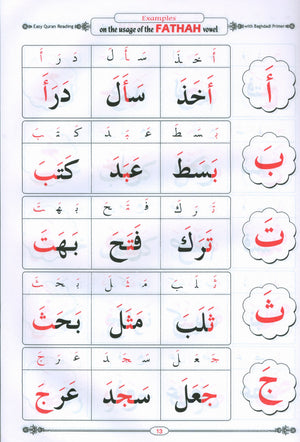 Examples
Easy Quran Reading on the usage of the FATHAH vowel with Baghdadi Primer
أَ خَ ذَ سَ أَ لَ دَ رَ أَ
أَ أَخَذَ سَأَلَ دَرَأَ
بَ سَ طَ عَ بَ دَ كَ تَ بَ
بَ بَسَطَ عَبَدَ كَتَبَ
تَ رَ كَ فَ تَ حَ بَ هَ تَ
تَ تَرَكَ فَتَحَ بَهَتَ
ثَ لَ بَ مَ ثَ لَ بَ حَ ثَ
ثَ ثَلَبَ مَثَلَ بَحَثَ
جَ عَ لَ سَ جَ دَ عَ رَ جَ
جَ جَعَلَ سَجَدَ عَرَجَ
13